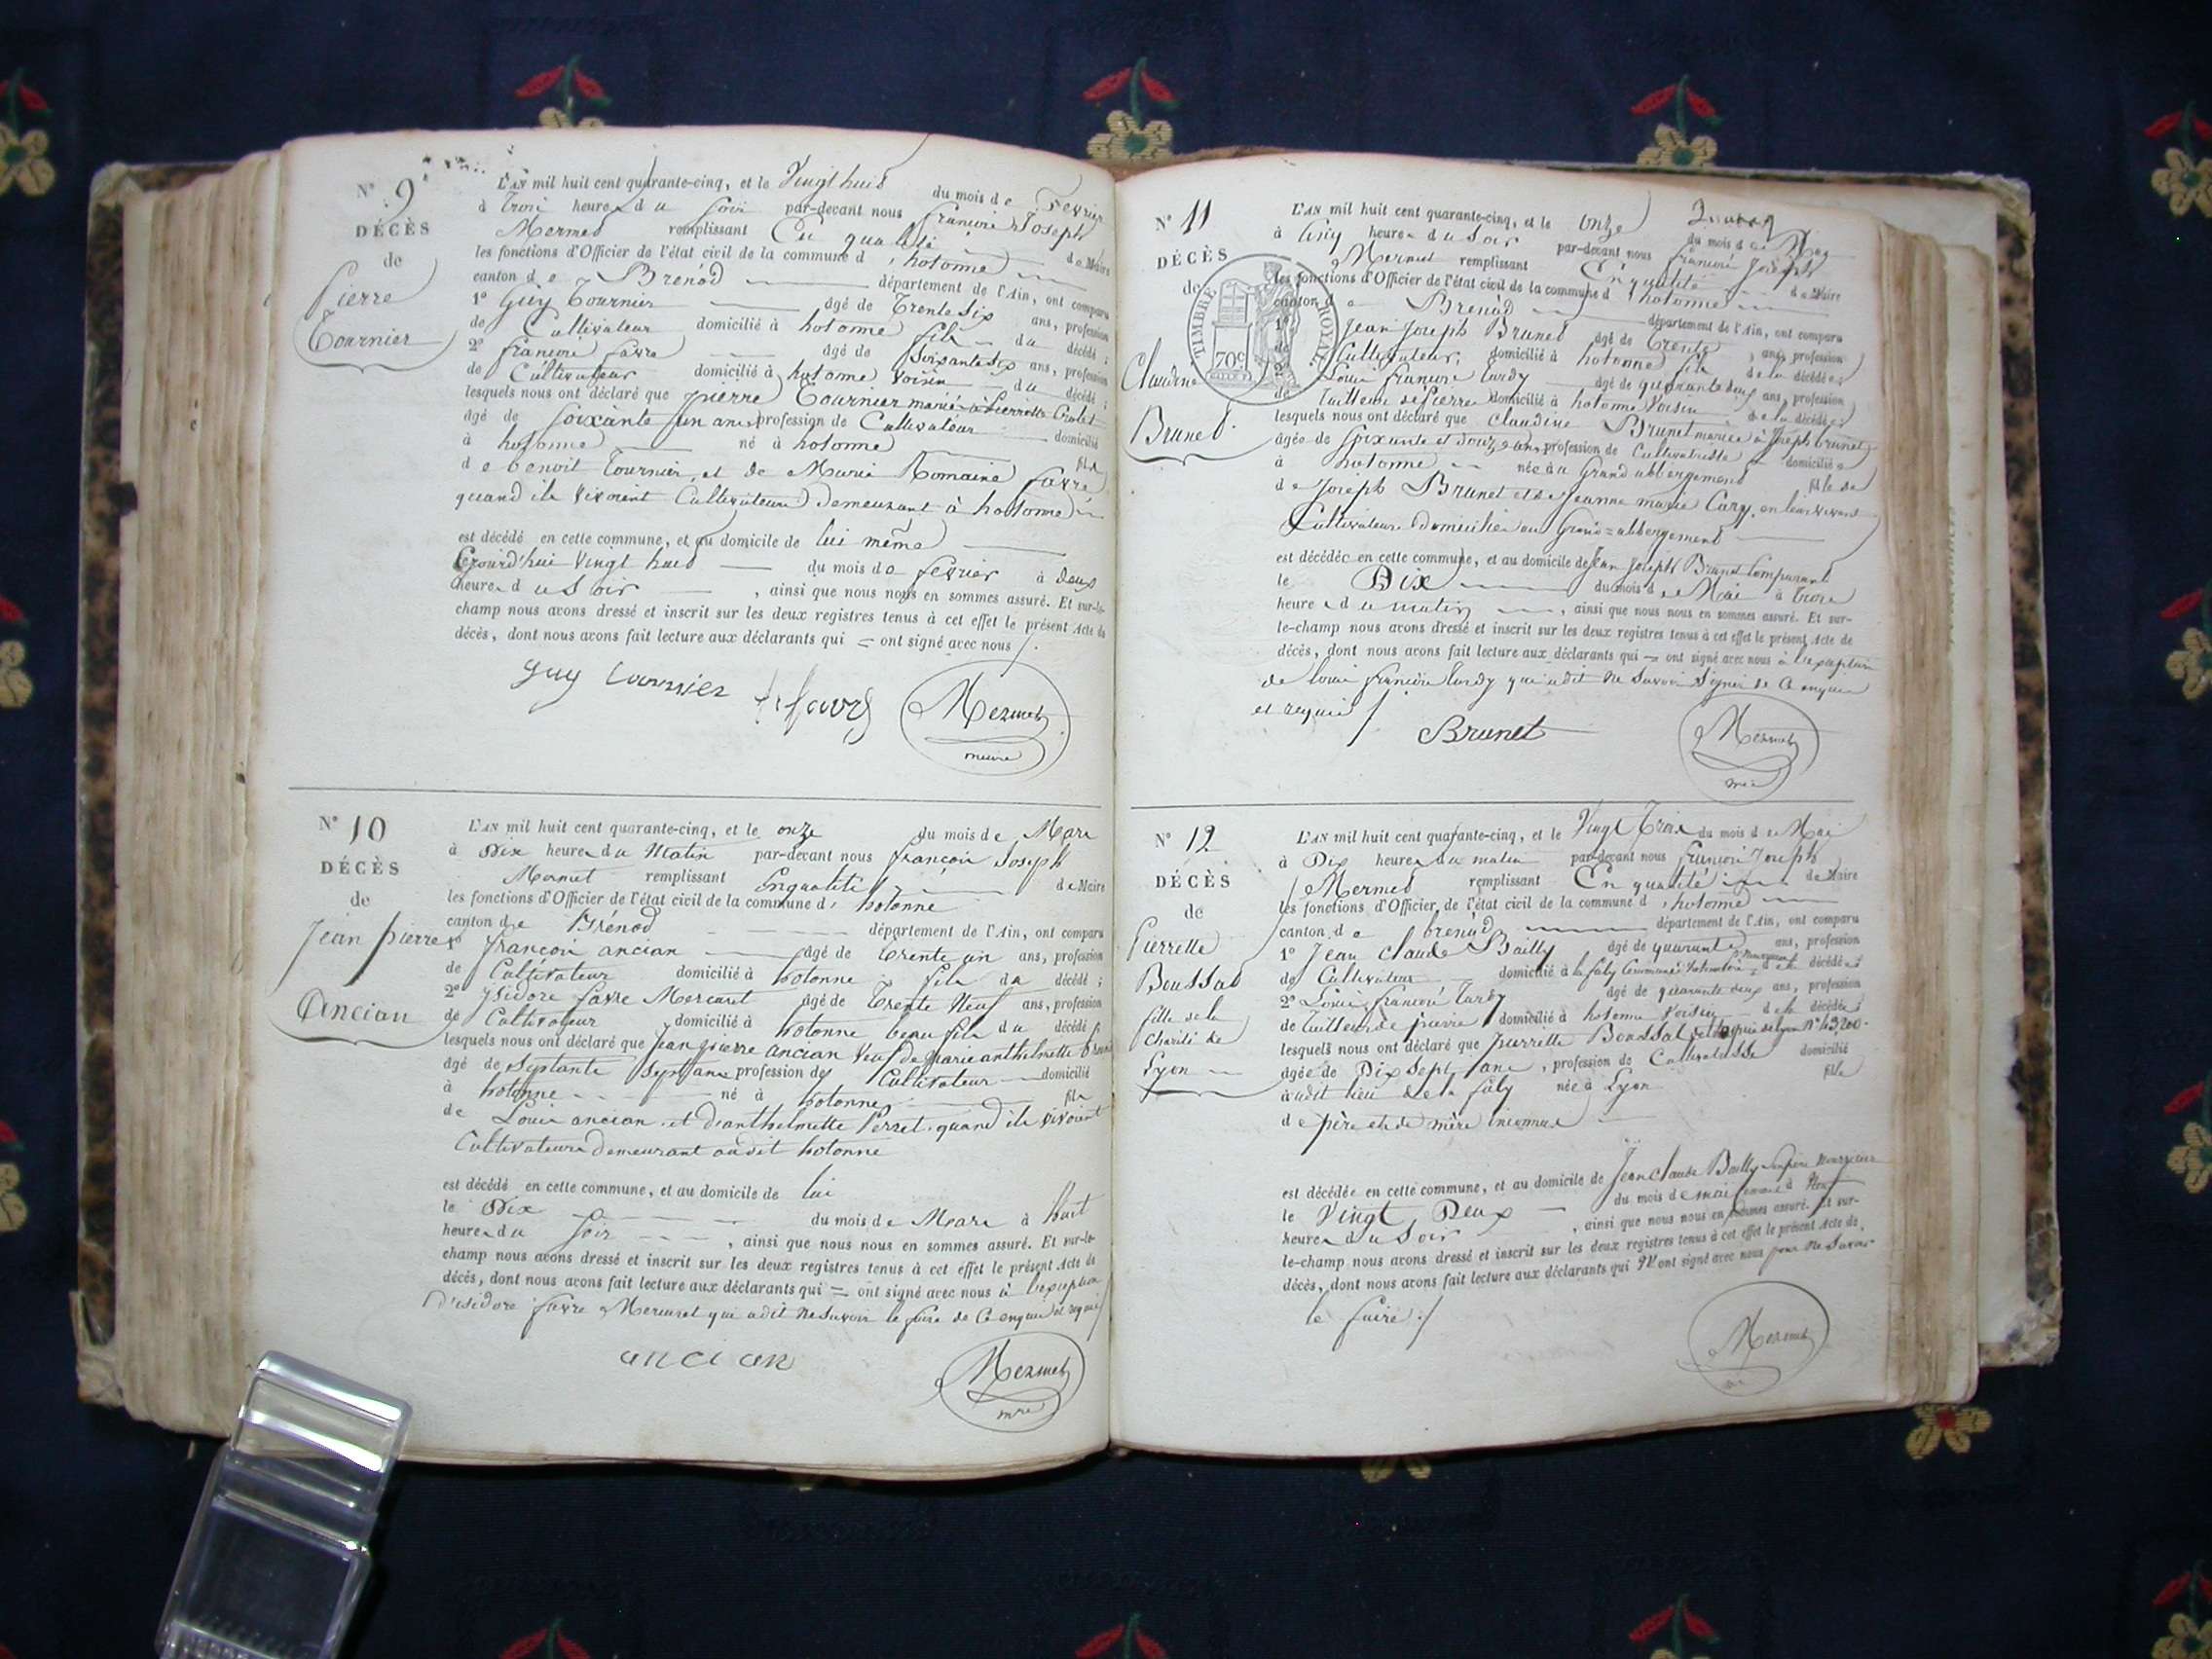 N° 9
DÉCÈS
de
Pierre
Tournier
L'AN mil huit cent quarante-cinq, et le Vingt huit du mois de Fevrier
à trois heures du soir par-devant nous françois Joseph
Mermet remplissant En qualité de Maire
les fonctions d'Officier de l'état civil de la commune d'hotonne
canton de Brenod département de l'Ain, ont comparu
1° Guy Tournier âgé de Trente Six ans, profession
de Cultivateur domicilié à hotonne fils du décédé ;
2° françois favre âgé de Soixante Six ans, profession
de Cultivateur domicilié à hotonne Voisin du décédé ;
lesquels nous ont déclaré que pierre Tournier marié à Pierrette
âgé de Soixante un ans profession de Cultivateur domicilié
à hotonne né à hotonne fils
de benoit Tournier et de Marie Romaine favre
quand ils vivoient Cultivateurs Demeurant à hotonne
est décédé en cette commune, et au domicile de lui même
Cejourd'hui Vingt huit du mois de fevrier à deux
heures du Soir , ainsi que nous nous en sommes assuré. Et sur-le-
champ nous avons dressé et inscrit sur les deux registres tenus à cet effet le présent Acte de
décès, dont nous avons fait lecture aux déclarants qui = ont signé avec nous /.
Guy tournier favre Mermet
maire
N° 10
DÉCÈS
de
Jean pierre
Ancian
L'AN mil huit cent quarante-cinq, et le onze du mois de Mars
à Dix heures du Matin par-devant nous françois Joseph
Mermet remplissant Enqualité de Maire
les fonctions d'Officier de l'état civil de la commune d'hotonne
canton de Brénod département de l'Ain, ont comparu
1° françois ancian âgé de trente un ans, profession
de Cultivateur domicilié à hotonne fils du décédé ;
2° ysidore favre Mercuret âgé de Trente Neuf ans, profession
de Cultivateur domicilié à hotonne beau fils du décédé ;
lesquels nous ont déclaré que Jean pierre ancian Veuf de Marie anthelmette
âgé de Septante Sept ans profession de Cultivateur domicilié
à hotonne né à hotonne fils
de Louis ancian et d'anthelmette Perret quand ils vivoient
Cultivateurs Demeurant audit hotonne
est décédé en cette commune, et au domicile de lui
le Dix du mois de Mars à huit
heures du Soir , ainsi que nous nous en sommes assuré. Et sur-le-
champ nous avons dressé et inscrit sur les deux registres tenus à cet effet le présent Acte de
décès, dont nous avons fait lecture aux déclarants qui = ont signé avec nous à l'exception
d'isidore favre Mercuret qui adit Nesavoir le faire de Ce enquis et requis /
ancian Mermet
mre
N° 11
DÉCÈS
de
Claudine
Brunet.
TIMBRE ROYAL
70c
L'AN mil huit cent quarante-cinq, et le onze du mois de May
à Cinq heures du Soir par-devant nous françois Joseph
Mermet remplissant En qualité de Maire
les fonctions d'Officier de l'état civil de la commune d'hotonne
canton de Brenod département de l'Ain, ont comparu
1° Jean Joseph Brunet âgé de Trente ans, profession
de Cultivateur, domicilié à hotonne fils de la décédée ;
2° Louis françois tardy âgé de quarante deux ans, profession
de tailleur de pierre domicilié à hotonne Voisin de la décédée
lesquels nous ont déclaré que Claudine Brunet mariée à Joseph brunet
âgée de Soixante et Douze ans profession de Cultivatrisse domiciliée
à hotonne née au Grand abbergement fille de
de Joseph Brunet et de Jeanne marie Carry en leur vivant
Cultivateurs Domiciliés au Grand=abbergement
est décédée en cette commune, et au domicile de Jean Joseph Brunet Comparant
le Dix du mois de Mai à trois
heures du matin , ainsi que nous nous en sommes assuré. Et sur-
le-champ nous avons dressé et inscrit sur les deux registres tenus à cet effet le présent Acte de
décès, dont nous avons fait lecture aux déclarants qui = ont signé avec nous à l'exception
de louis françois tardy qui adit Ne Savoir Signer de Ce enquis
et requis /
Brunet Mermet
N° 12
DÉCÈS
de
Pierrette
Boussat
fille de la
Charité de
Lyon
L'AN mil huit cent quarante-cinq, et le Vingt Trois du mois de Mai
à Dix heures du matin par-devant nous françois Joseph
Mermet remplissant En qualité de Maire
les fonctions d'Officier de l'état civil de la commune d'hotonne
canton de brenod département de l'Ain, ont comparu
1° Jean Claude Bailly âgé de quarante ans, profession
de Cultivateur domicilié à la faly de la décédée
2° Louis françois Tardy âgé de quarante deux ans, profession
de tailleur de pierre domicilié à hotonne Voisin de la décédée
lesquels nous ont déclaré que pierrette Boussat de Lyon N°
âgée de Dix Sept ans , profession de Cultivatrisse domicilié
à udit lieu de la faly née à Lyon fille
de père et de mère inconnus
est décédée en cette commune, et au domicile de Jean Claude Bailly Son père Nourricier
le Vingt Deux du mois de mai à Neuf
heures du Soir , ainsi que nous nous en sommes assuré. Et sur-
le-champ nous avons dressé et inscrit sur les deux registres tenus à cet effet le présent Acte de
décès, dont nous avons fait lecture aux déclarants qui N'ont signé avec nous pour Ne Savoir
le faire /
Mermet